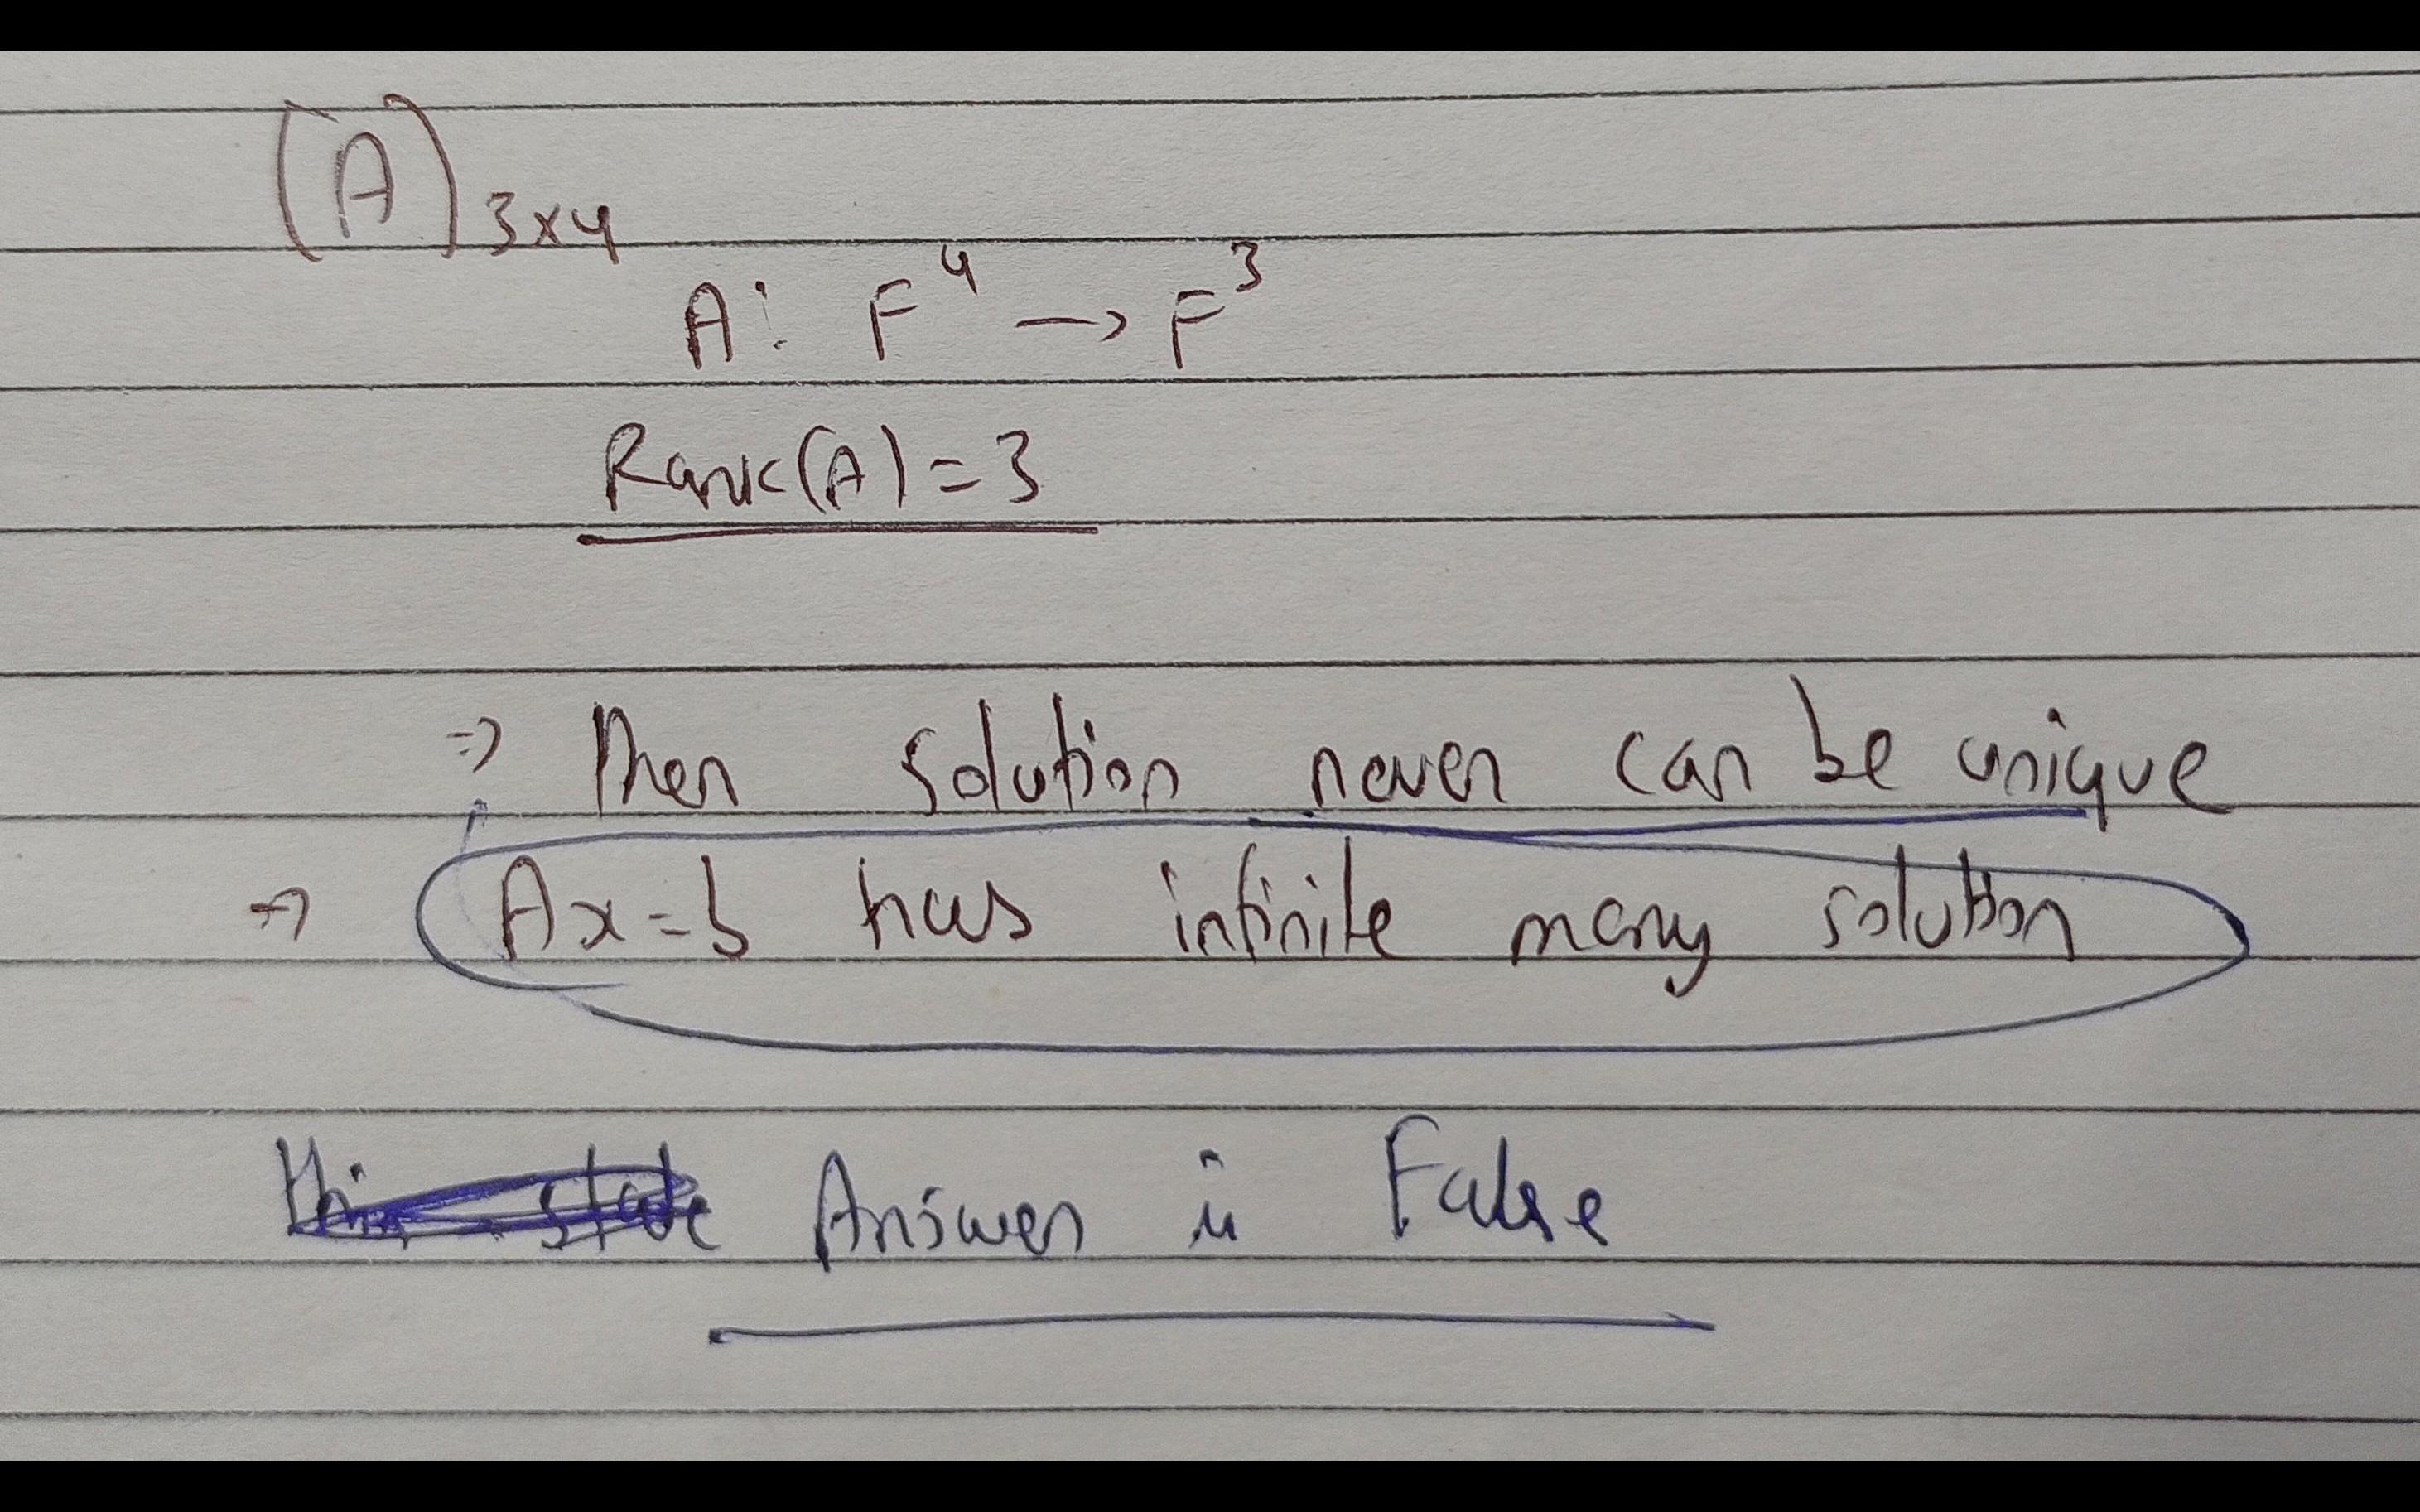 (A)3x4
A: F^4 -> F^3
Rank(A) = 3
=> Then solution never can be unique
=> Ax=b has infinite many solution
Answer is False